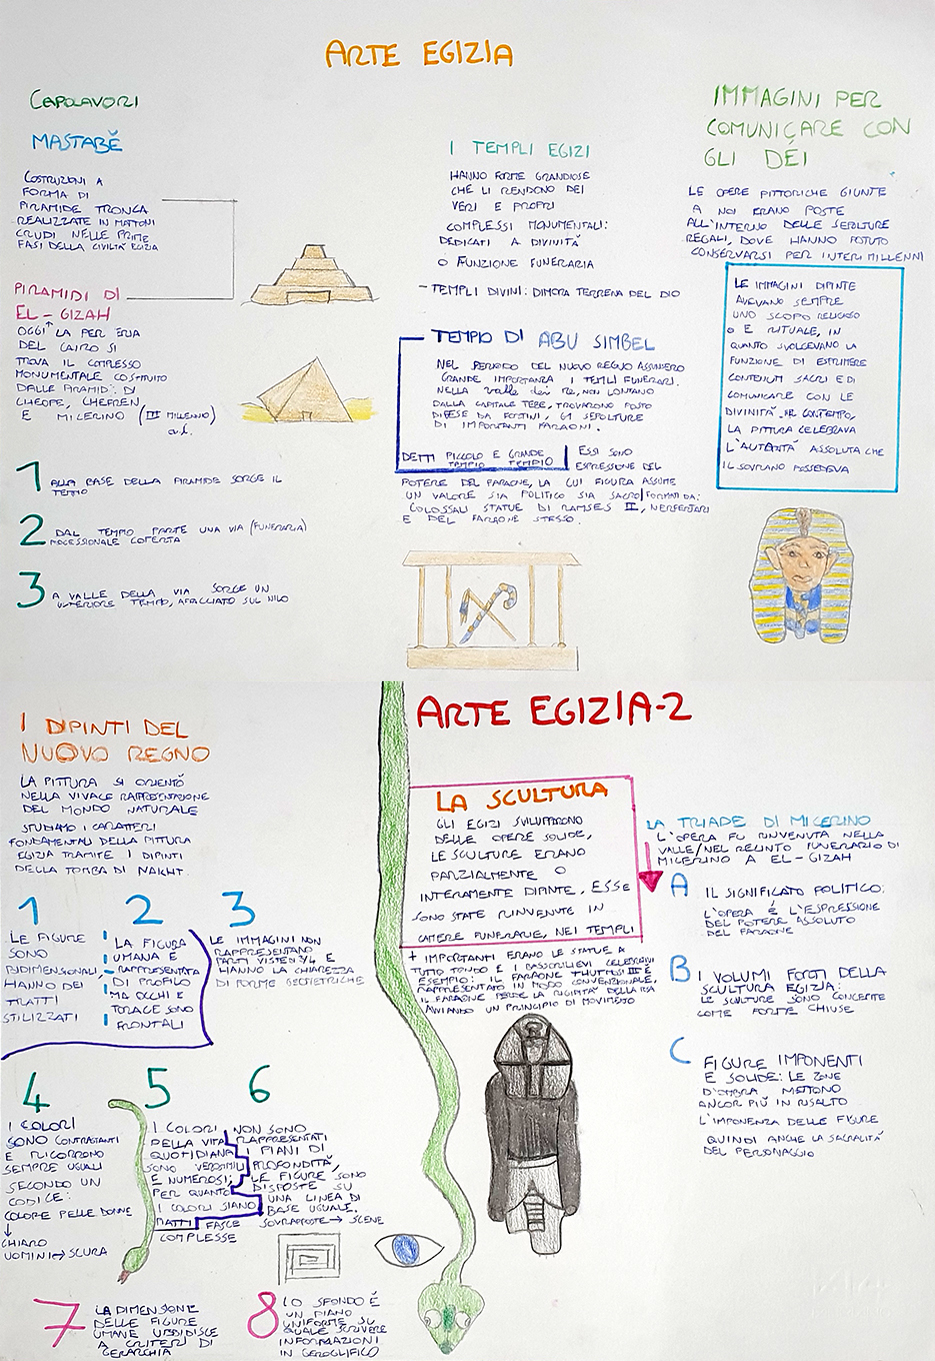 ARTE EGIZIA
CAPOLAVORI
MASTABE
COSTRUZIONI A
FORMA DI
PIRAMIDE TRONCA
REALIZZATE IN MATTONI
CRUDI NELLE PRIME
FASI DELLA CIVILTÀ EGIZIA
PIRAMIDI DI
EL-GIZAH
OGGI LA PER
DEL CAIRO SI
TROVA IL COMPLESSO
MONUMENTALE COSTITUITO
DALLE PIRAMIDI DI
CHEOPE, CHEFREN
E MICERINO (III MILLENNIO)
a.C.
1 ALLA BASE DELLA PIRAMIDE SORGE IL
TEMPIO
2 DAL TEMPIO PARTE UNA VIA (FUNERARIA)
PROCESSIONALE COPERTA
3 A VALLE DELLA VIA SORGE UN
ULTERIORE TEMPIO, AFFACCIATO SUL NILO
I TEMPLI EGIZI
HANNO FORME GRANDIOSE
CHE LI RENDONO DEI
VERI E PROPRI
COMPLESSI MONUMENTALI:
DEDICATI A DIVINITÀ
O FUNZIONE FUNERARIA
- TEMPLI DIVINI: DIMORA TERRENA DEL DIO
TEMPIO DI ABU SIMBEL
NEL PERIODO DEL NUOVO REGNO ASSUNSERO
GRANDE IMPORTANZA I TEMPLI FUNERARI.
NELLA Valle dei Re, NON LONTANO
DALLA CAPITALE TEBE, TROVARONO POSTO
DIFESE DA FORTINI, 61 SEPOLTURE
DI IMPORTANTI FARAONI.
DETTI PICCOLO E GRANDE
TEMPIO TEMPIO
ESSI SONO
ESPRESSIONE DEL
POTERE DEL FARAONE, LA CUI FIGURA ASSUME
UN VALORE SIA POLITICO SIA SACRO/FORMATI DA:
COLOSSALI STATUE DI RAMSES II, NERFERTARI
E DEL FARAONE STESSO.
IMMAGINI PER
COMUNICARE CON
GLI DÉI
LE OPERE PITTORICHE GIUNTE
A NOI ERANO POSTE
ALL'INTERNO DELLE SEPOLTURE
REGALI, DOVE HANNO POTUTO
CONSERVARSI PER INTERI MILLENNI
LE IMMAGINI DIPINTE
AVEVANO SEMPRE
UNO SCOPO RELIGIOSO
O E RITUALE, IN
QUANTO SVOLGEVANO LA
FUNZIONE DI ESPRIMERE
CONTENUTI SACRI E DI
COMUNICARE CON LE
DIVINITÀ. NEL CONTEMPO,
LA PITTURA CELEBRAVA
L'AUTORITÀ ASSOLUTA CHE
IL SOVRANO POSSEDEVA
ARTE EGIZIA-2
I DIPINTI DEL
NUOVO REGNO
LA PITTURA SI ORIENTÒ
NELLA VIVACE RAPPRESENTAZIONE
DEL MONDO NATURALE
STUDIAMO I CARATTERI
FONDAMENTALI DELLA PITTURA
EGIZIA TRAMITE I DIPINTI
DELLA TOMBA DI NAKHT.
1
LE FIGURE
SONO
BIDIMENSIONALI,
HANNO DEI
TRATTI
STILIZZATI
2
LA FIGURA
UMANA È
RAPPRESENTATA
DI PROFILO
MA OCCHI E
TORACE SONO
FRONTALI
3
LE IMMAGINI NON
RAPPRESENTANO
PARTI VISTE 3/4 E
HANNO LA CHIAREZZA
DI FORME GEOMETRICHE
4
I COLORI
SONO CONTRASTANTI
E RICORRONO
SEMPRE UGUALI
SECONDO UN
CODICE:
COLORE PELLE DONNE
↓
CHIARO
UOMINI→SCURA
5
I COLORI
DELLA VITA
QUOTIDIANA
SONO VEROSIMILI
E NUMEROSI,
PER QUANTO
I COLORI SIANO
PIATTI
6
NON SONO
RAPPRESENTATI
I PIANI DI
PROFONDITÀ,
LE FIGURE SONO
DISPOSTE SU
UNA LINEA DI
BASE UGUALE.
FASCE SOVRAPPOSTE → SCENE
COMPLESSE
7
LA DIMENSIONE
DELLE FIGURE
UMANE UBBIDISCE
A CRITERI DI
GERARCHIA
8
LO SFONDO È
UN PIANO
UNIFORME SU
QUALE SCRIVERE
INFORMAZIONI
IN GEROGLIFICO
LA SCULTURA
GLI EGIZI SVILUPPARONO
DELLE OPERE SOLIDE,
LE SCULTURE ERANO
PARZIALMENTE O
INTERAMENTE DIPINTE, ESSE
SONO STATE RINVENUTE IN
CAMERE FUNERARIE, NEI TEMPLI
+ IMPORTANTI ERANO LE STATUE A
TUTTO TONDO E I BASSORILIEVI CELEBRATIVI
ESEMPIO: IL FARAONE THUTMOSI III È
RAPPRESENTATO IN MODO CONVENZIONALE,
IL FARAONE PERDE LA RIGIDITÀ DELLA POSA
AVVIANDO UN PRINCIPIO DI MOVIMENTO
LA TRIADE DI MICERINO
L'OPERA FU RINVENUTA NELLA
VALLE/NEL RECINTO FUNERARIO DI
MICERINO A EL-GIZAH
A IL SIGNIFICATO POLITICO:
L'OPERA È L'ESPRESSIONE
DEL POTERE ASSOLUTO
DEL FARAONE
B I VOLUMI FORTI DELLA
SCULTURA EGIZIA:
LE SCULTURE SONO CONCEPITE
COME FORME CHIUSE
C FIGURE IMPONENTI
E SOLIDE: LE ZONE
D'OMBRA METTONO
ANCOR PIÙ IN RISALTO
L'IMPONENZA DELLE FIGURE
QUINDI ANCHE LA SACRALITÀ
DEL PERSONAGGIO